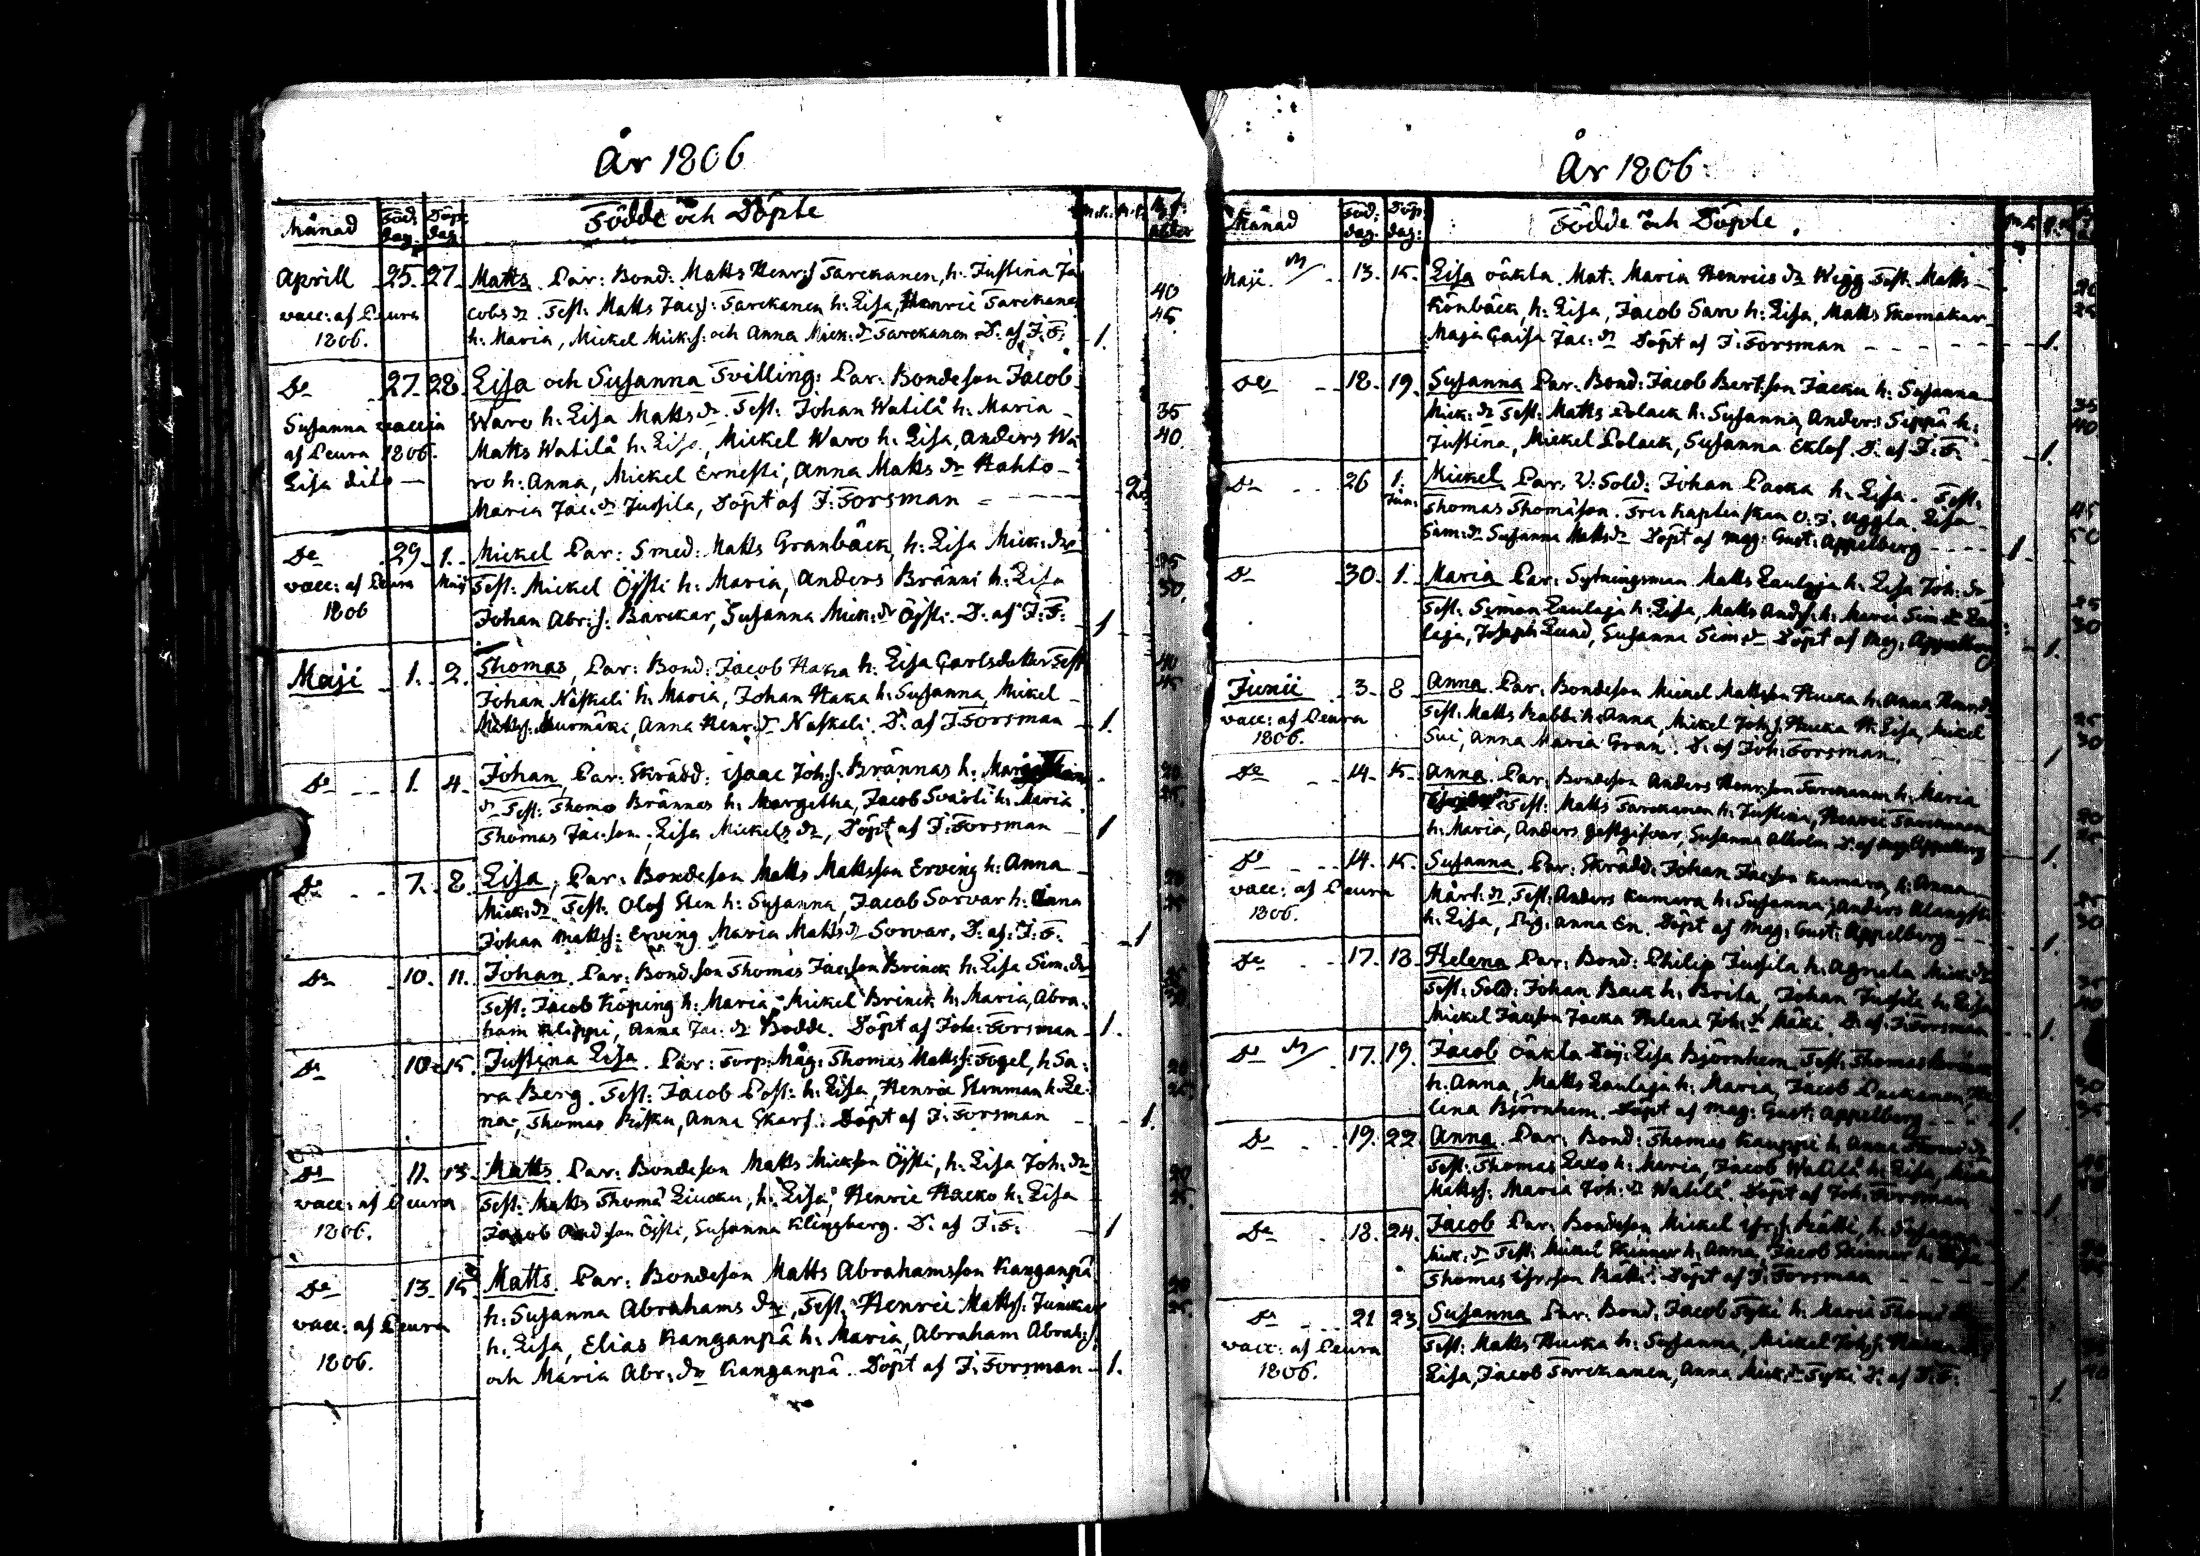 År 1806
Månad Föd. dag. Döp. dag. Födde och Döpte m.k. q.k.
Aprill 25. 27. Matts Par: Bond: Matts Henr:s Tarckanen, h: Justina Ja
vacc: af Peura cobs dr. Test: Matts Jac:s: Tarckanen h: Lisa, Henric Tarckane 40
1806. h: Maria, Mickel Mick:s: och Anna Mick: dr Tarckanen D: af J: F: 1. 45.
De 27. 28. Lisa och Susanna Tvilling: Par: Bondeson Jacob
Susanna vaccin Waro h: Lisa Matts dr. Test: Johan Watilå h: Maria 35
af Peura 1806. Matts Watilå h: Lisa, Mickel Waro h: Lisa, Anders Wa 40.
Lisa dito ro h: Anna, Mickel Ernesti, Anna Matts dr Rahto
Maria Jac: dr Jussila, Döpt af J: Forsman 2.
De 29. 1. Mickel Par: Smed: Matts Granbäck, h: Lisa Mick: dr 25
vacc: af Peura Maij Test: Mickel Öjsti h: Maria, Anders Bränni h: Lisa 30.
1806 Johan Abr: s: Barckar, Susanna Mick: dr Öjsti. D: af J: F: 1
Maji 1. 2. Thomas, Par: Bond: Jacob Haka h: Lisa Carlsdotter Test 40
Johan Näskeli h: Maria, Johan Haka h: Susanna, Mikel 45
Matts: Anna Henr: dr Naskali. D: af J: Forsman 1.
De 1. 4. Johan, Par: Skrädd: Isaac Joh: s: Brännas h:
dr Test: Thoms Brännas h: Margetha, Jacob Svarli h: Maria 25.
Thomas Jac: son, Lisa Mickels dr, Döpt af J: Forsman 1
De 7. 8. Lisa, Par: Bondeson Matts Mattsson Erving h: Anna
Mick: dr. Test: Olof Sten h: Susanna, Jacob Sorvar h: Anna 25
Johan Matts: Erving Maria Matts dr Sorvar. D: af: J: F: 1
De 10. 11. Johan. Par: Bond: son Thomas Jac: son Brinck h: Lisa Sim: dr
Test: Jacob Köping h: Maria Mickel Brinck h: Maria, Abra:
ham Klippi, Anna Jac: dr Bodde. Döpt af Joh: Forsman 1.
De 10. 15. Justina Lisa. Par: Torp: Måg: Thomas Matts: Fogel, h: Sa: 20
ra Berg. Test: Jacob Post: h: Lisa, Henric Stenman h: Le: 25.
na, Thomas Pitka, Anna Skarf: Döpt af J: Forsman 1.
De 11. 13. Matts. Par: Bondeson Matts Mickson Öjsti, h: Lisa Joh: dr 20
vacc: af Peura Test: Matts Thoms Liucku, h: Lisa, Henric Hacko h: Lisa 25.
1806. Jacob And: son Öjsti, Susanna Klingberg. D: af J: F: 1
De 13. 15 Matts. Par: Bondeson Matts Abrahamsson Kanganpä 20
vacc: af Peura h: Susanna Abrahams dr, Test: Henric Matts: Junckar 25.
1806. h: Lisa, Elias Kanganpä h: Maria, Abraham Abrah: s:
och Maria Abr: dr Kanganpä. Döpt af J: Forsman 1.
År 1806.
Månad Föd: dag. Döp: dag: Födde och Döpte.
Maji 13. 15. Lisa oäkta. Mat: Maria Henrics dr Wigg Test: Matts
Könbäck, h: Lisa, Jacob Saro h: Lisa, Matts Skomakar 25
Maja Caisa Jac: dr Döpt af J: Forsman 1.
De 18. 19. Susanna Par: Bond: Jacob Bert: son Jacku h: Susanna
Mick: dr Test: Matts Polack h: Susanna, Anders Seppä h: 35
Justina, Mickel Polack, Susanna Eklöf. D: af J: F: 1. 40
De 26 1. Jun: Mickel. Par: V: Sold: Johan Packa h: Lisa. Test:
Thomas Thomasson. Fru Kaptenskan O: J: Uggla. Lisa 45
Sim: dr Susanna Matts dr Döpt af Mag: Gust: Appelberg 1 50
De 30. 1. Maria Par: Sytningsman Matts Laulaja h: Lisa Joh: dr
Test: Simon Laulaja h: Lisa, Matts Ands: h: Maria Sim: dr Lau 25
laja, Joseph Lund, Susanna Sim: dr Döpt af Mag: Appelberg 1. 30
Junii 3. 8. Anna Par: Bondeson Mickel Mattsson Hucka h: Anna Henr: dr
vacc: af Peura Test: Matts Rabbi h: Anna, Mickel Joh: s: Hucka h: Lisa, Mickel 25
1806. Sui, Anna Maria Gran. D: af Joh: Forsman. 1 30
De 14. 15. Anna Par: Bondeson Anders Henr: son Tarckanen h: Maria
Test: Matts Tarckanen h: Justina, Henric Tarckanen 20
h: Maria, Anders Gestgifvar, Susanna Alholm D: af Mag: Appelberg 1. 25
De 14. 15. Susanna, Par: Skrädd: Johan Jacson Kumara, h: Anna
vacc: af Peura Mårt: dr, Test: Anders Kumara h: Susanna, Anders 25
1806. h: Lisa, Pig: Anna En. Döpt af Mag: Gust: Appelberg 1. 30
De 17. 18. Helena Par: Bond: Philip Jussila h: Agneta Mick: dr
Test: Sold: Johan Back h: Brita, Johan Jussila h: Lisa 35
Mickel Jacson Jacka Helena Joh: dr Mäki. D: af J: Forsman 1. 40
De 17. 19. Jacob oäkta Pij: Lisa Björnhem. Test: Thomas
h: Anna, Matts Laulaja h: Maria, Jacob Packanen, He 30
lena Björnhem. Döpt af Mag: Gust: Appelberg 1. 35
De 19. 22. Anna Par: Bond: Thomas Kauppi h: Anna Thoms dr
Test: Thomas Laxo h: Maria, Jacob Watilå h: Lisa, Mick
Matts: Maria Joh: dr Watilå. Döpt af Joh: Forsman 1.
De 18. 24. Jacob Par: Bondeson Mickel Isr: s: Rätti, h: Susanna
Mick: dr Test: Mickel Skinnar h: Anna, Jacob Skinnar h: Lisa
Thomas Isr: son Rätti. Döpt af J: Forsman 1.
De 21 23 Susanna Par: Bond: Jacob Tyki h: Maria Thoms dr
vacc: af Peura Test: Matts Hucka h: Susanna, Mickel Joh: s: Hucka
1806. Lisa, Jacob Tarckanen, Anna Mick: dr Tyki D: af J: F: 1.